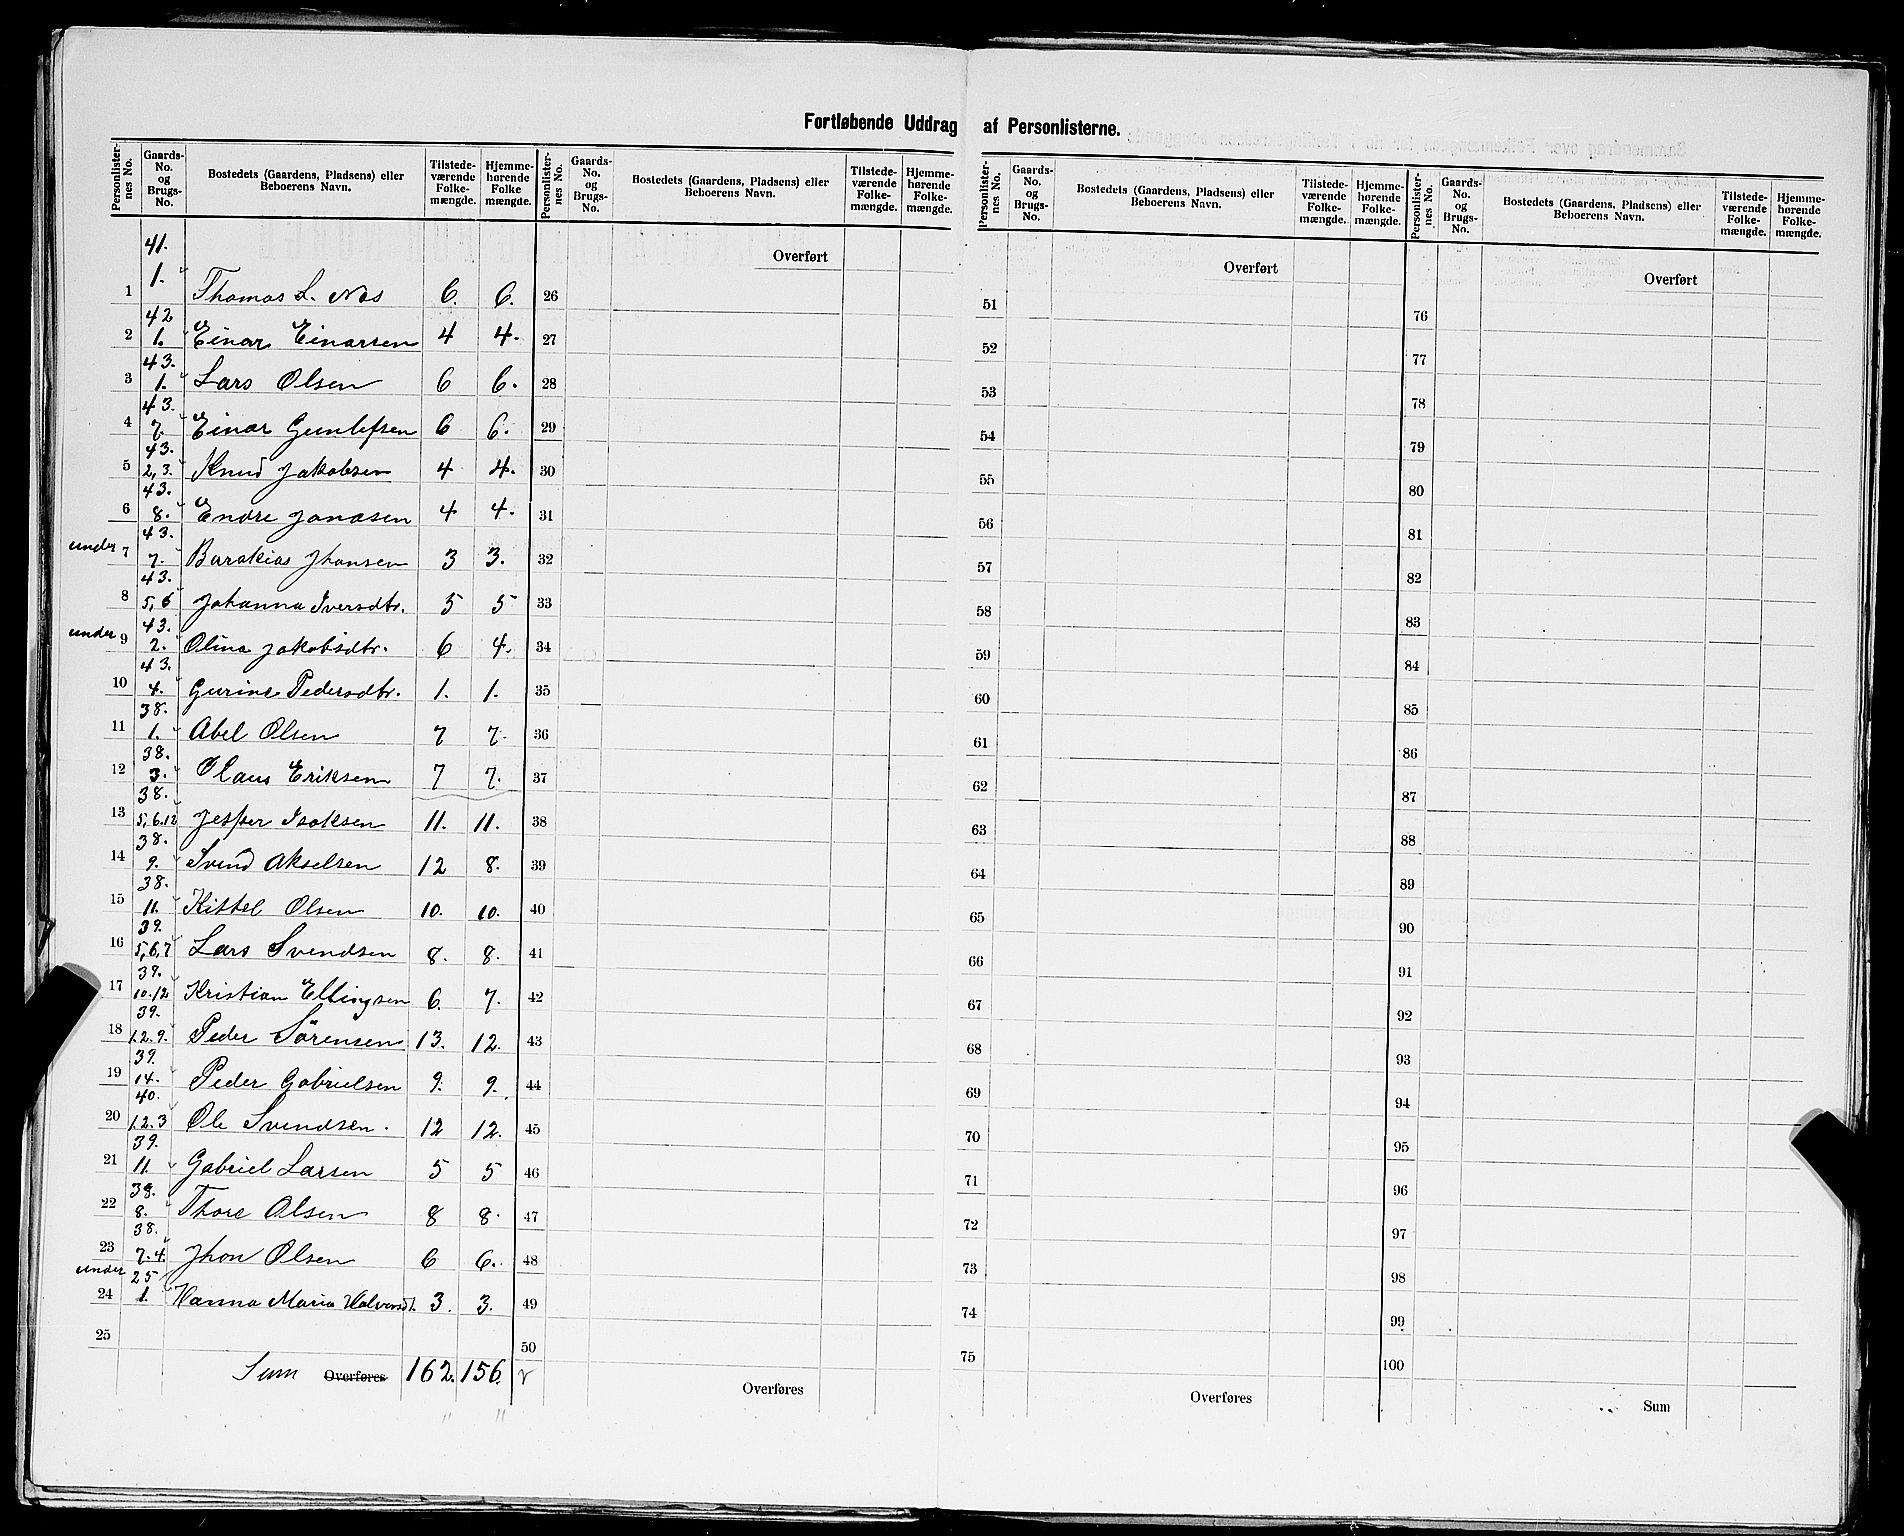 Fortløbende Uddrag af Personlisterne.
Personlister-nes No. Gaards-No. og Brugs-No. Bostedets (Gaardens, Pladsens) eller Beboerens Navn. Tilstede-værende Folke-mængde. Hjemme-hørende Folke mængde.
Personlister-nes No. Gaards-No. og Brugs-No. Bostedets (Gaardens, Pladsens) eller Beboerens Navn. Tilstede-værende Folke-mængde. Hjemme-hørende Folke-mængde.
Personlister-nes No. Gaards-No. og Brugs-No. Bostedets (Gaardens, Pladsens) eller Beboerens Navn. Tilstede-værende Folke-mængde. Hjemme-hørende Folke-mængde.
Personlister-nes No. Gaards-No. og Brugs-No. Bostedets (Gaardens, Pladsens) eller Beboerens Navn. Tilstede-værende Folke-mængde. Hjemme-hørende Folke-mængde.
41.
1 1. Thomas L. Næs 6. 6.
42
2 1. Einar Einarsen 4 4.
43.
3 1. Lars Olsen 6 6.
43.
4 7. Einar Gunlefsen 6 6.
43.
5 2,3. Knud Jakobsen 4 4.
43.
6 8. Endre Jonasen 4 4.
43.
under 7 7. Barakias Jhansen 3 3.
43.
8 5,6 Johanna Iversdtr. 5 5
43.
under 9 2. Olina Jakobsdtr. 6 4.
43.
10 4. Gurine Pedersdtr. 1. 1.
38.
11 1. Abel Olsen 7 7.
38.
12 3. Olaus Eriksen 7 7.
38.
13 5,6.12 Jesper Isaksen 11. 11.
38.
14 9. Svend Akselsen 12 8.
38.
15 11. Kittel Olsen 10. 10.
39.
16 5,6,7 Lars Svendsen 8. 8.
39.
17 10.12 Kristian Ellingsen 6. 7.
39.
18 1.2.9. Peder Sörensen 13. 12.
39.
19 14. Peder Gabrielsen 9. 9.
40.
20 1.2.3 Ole Svendsen. 12 12.
39.
21 11. Gabriel Larsen 5 5
38.
22 8. Thore Olsen 8 8.
38.
23 7.4. Jhon Olsen 6 6.
under 25
24 1. Hanna Maria Halvorsdt. 3. 3.
25
Sum Overføres 162. 156.
Overført
26
27
28
29
30
31
32
33
34
35
36
37
38
39
40
41
42
43
44
45
46
47
48
49
50
Overføres
Overført
51
52
53
54
55
56
57
58
59
60
61
62
63
64
65
66
67
68
69
70
71
72
73
74
75
Overføres
Overført
76
77
78
79
80
81
82
83
84
85
86
87
88
89
90
91
92
93
94
95
96
97
98
99
100
Sum